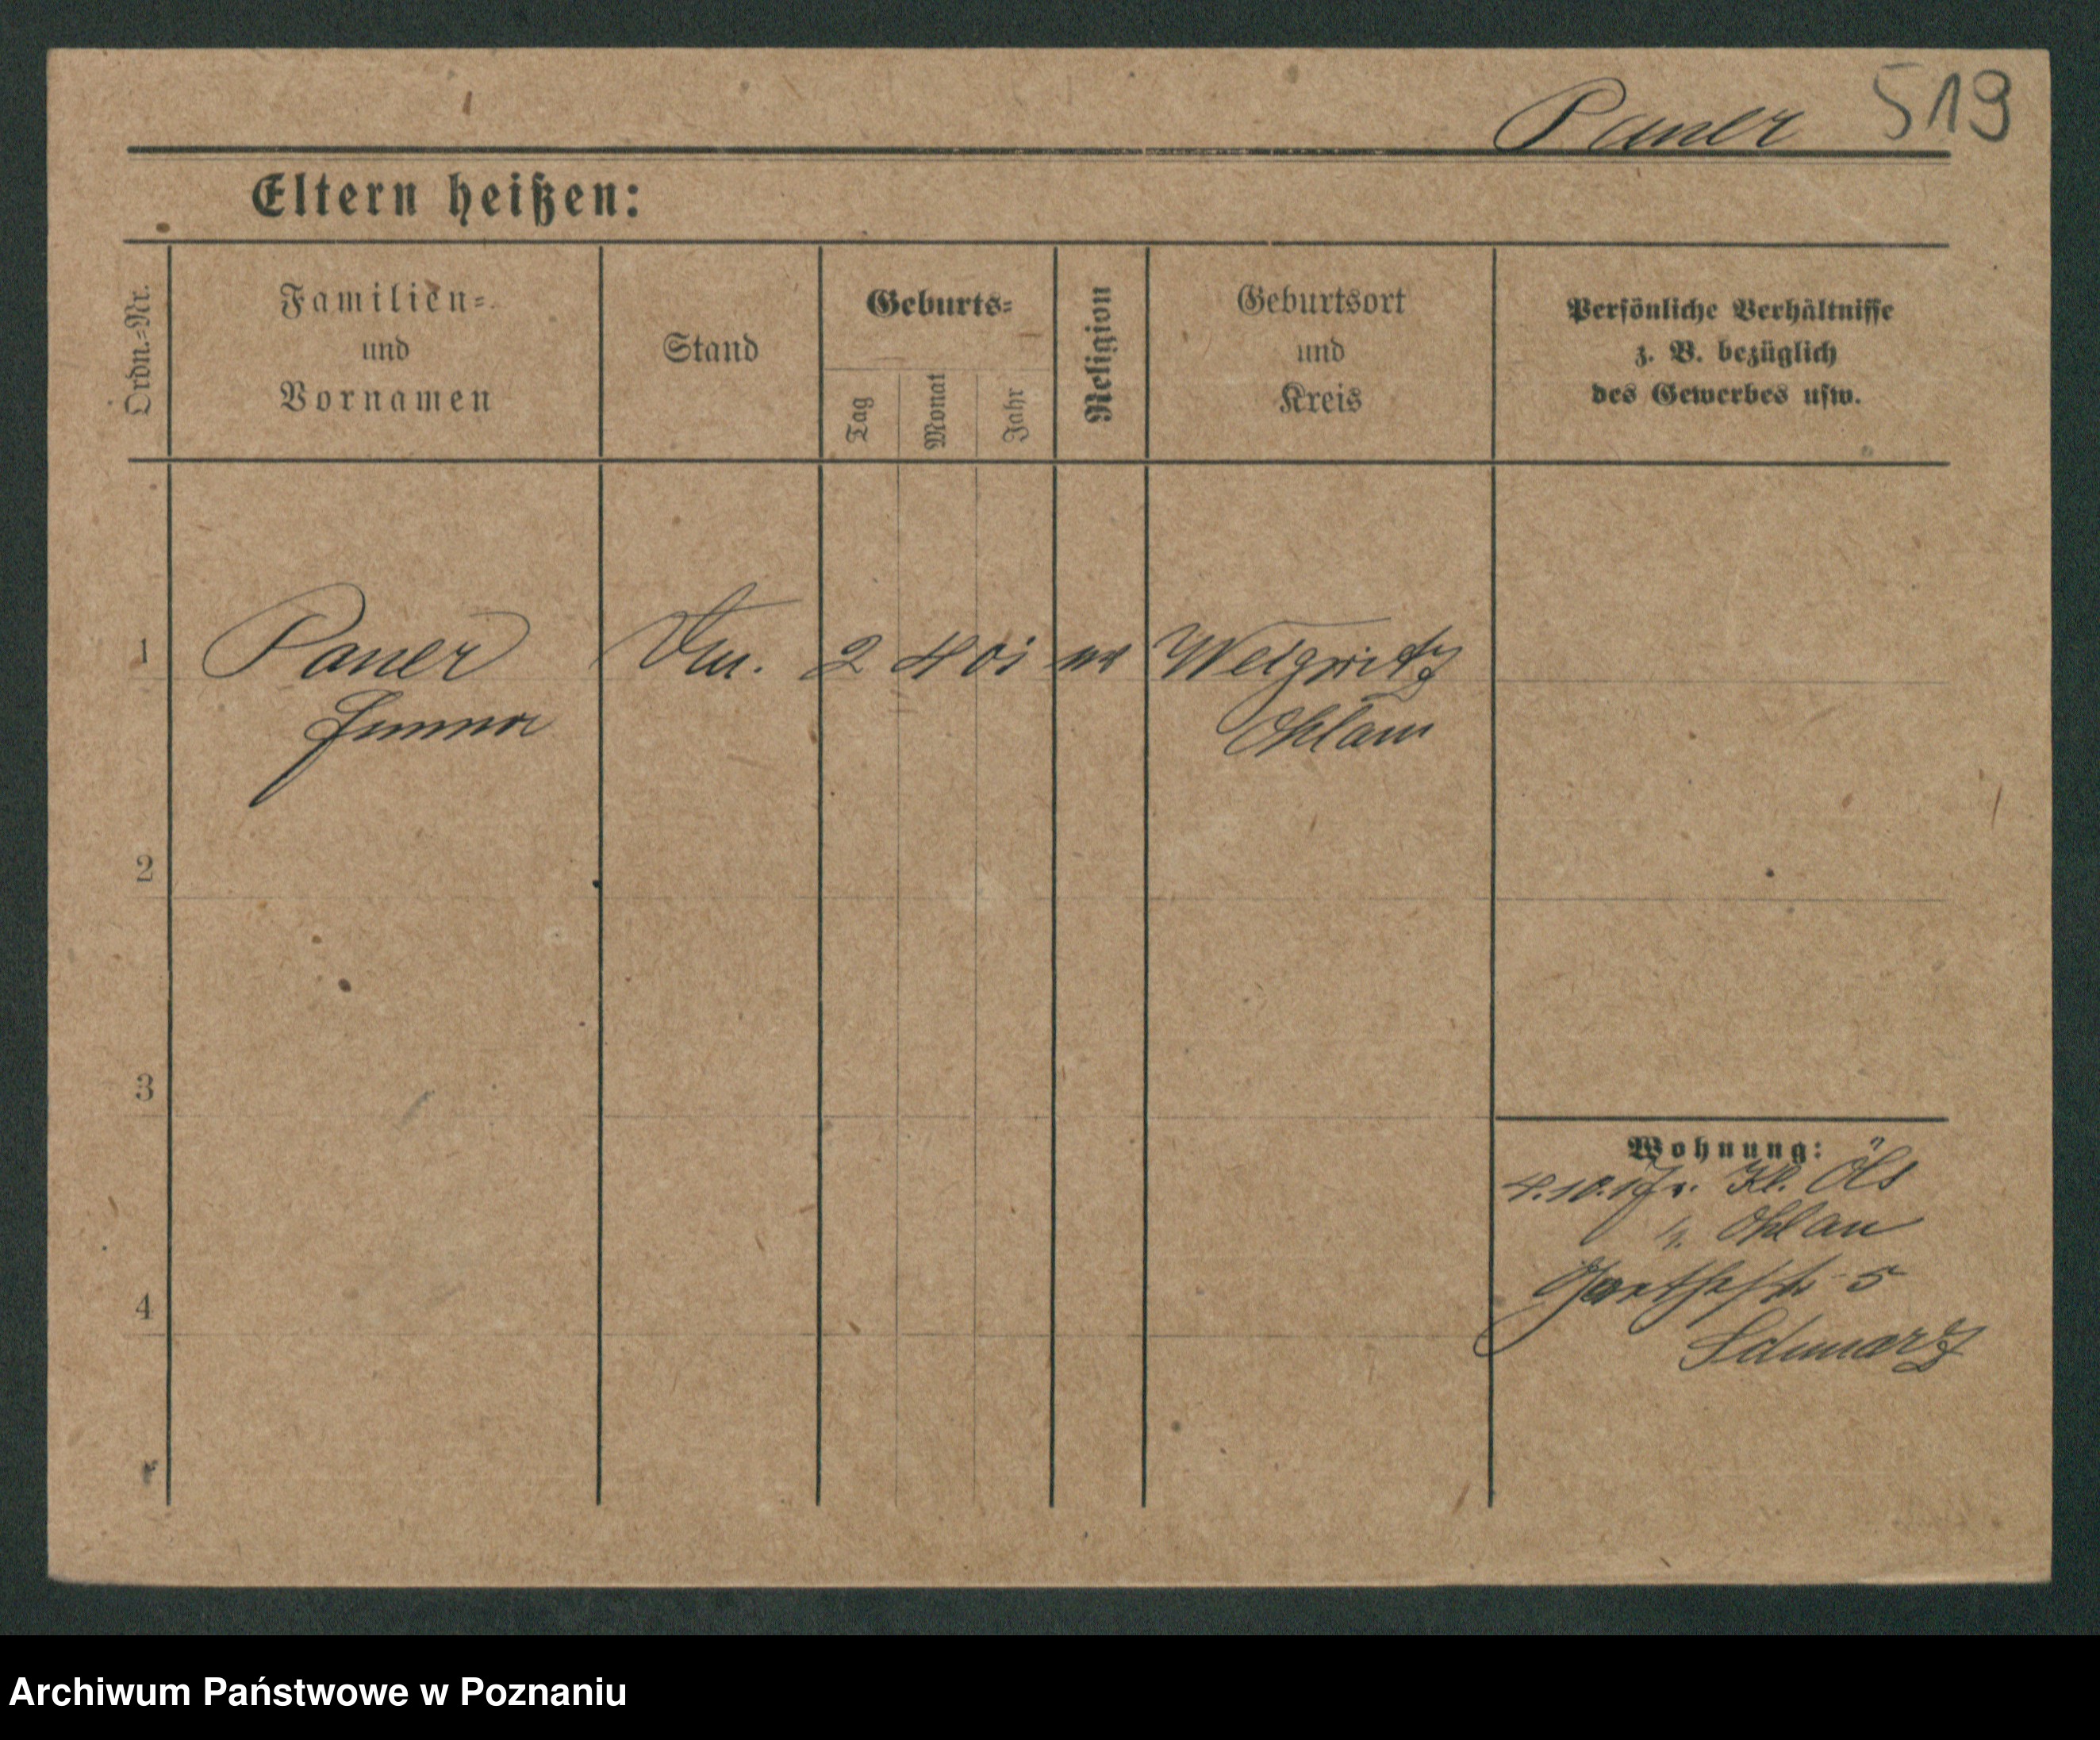 Paner 519
Eltern heißen:
Ordn.=Nr.
Familien=
und
Vornamen
Stand
Geburts=
Tag
Monat
Jahr
Religion
Geburtsort
und
Kreis
Persönliche Verhältnisse
z. B. bezüglich
des Gewerbes usw.
1 Paner 2 4 01 Weigwitz
Ohlau
2
3
4
Wohnung:
4.10.17 v. Kl. Öls
Ohlau
Goethestr 5
Schwarz
Archiwum Państwowe w Poznaniu